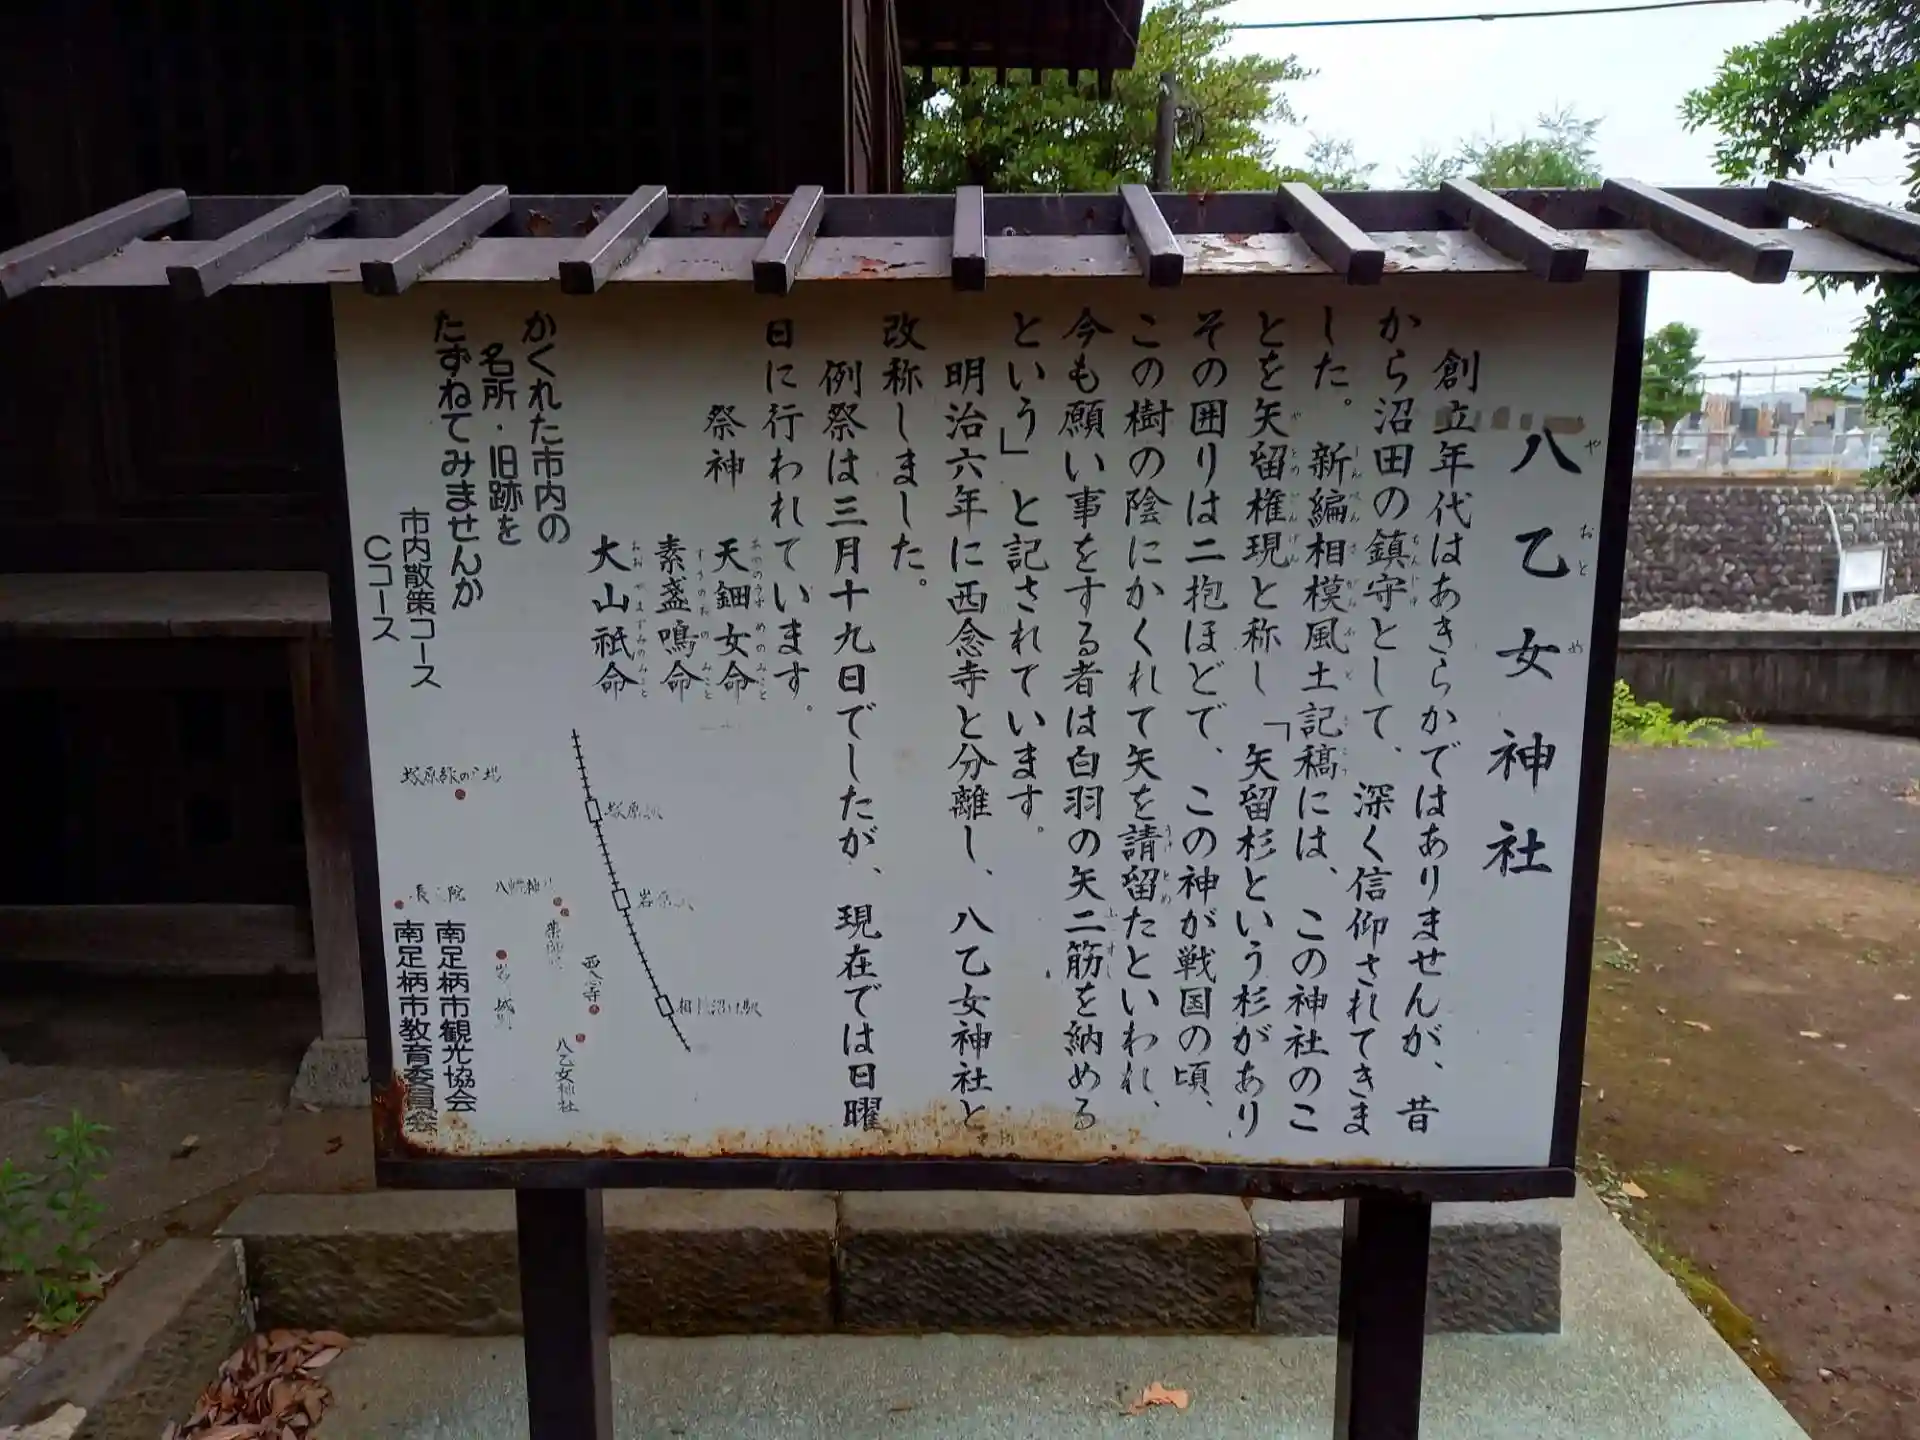 八乙女神社
創立年代はあきらかではありませんが、昔
から沼田の鎮守として、深く信仰されてきま
した。新編相模風土記稿には、この神社のこ
とを矢留権現と称し「矢留杉という杉があり
その囲りは二抱ほどで、この神が戦国の頃、
この樹の陰にかくれて矢を請留たといわれ、
今も願い事をする者は白羽の矢二筋を納める
という」と記されています。
明治六年に西念寺と分離し、八乙女神社と
改称しました。
例祭は三月十九日でしたが、現在では日曜
日に行われています。
祭神 天鈿女命
素盞鳴命
大山祇命
かくれた市内の
名所・旧跡を
たずねてみませんか
市内散策コース
Cコース
塚原駅
岩原駅
西念寺
八乙女神社
南足柄市観光協会
南足柄市教育委員会